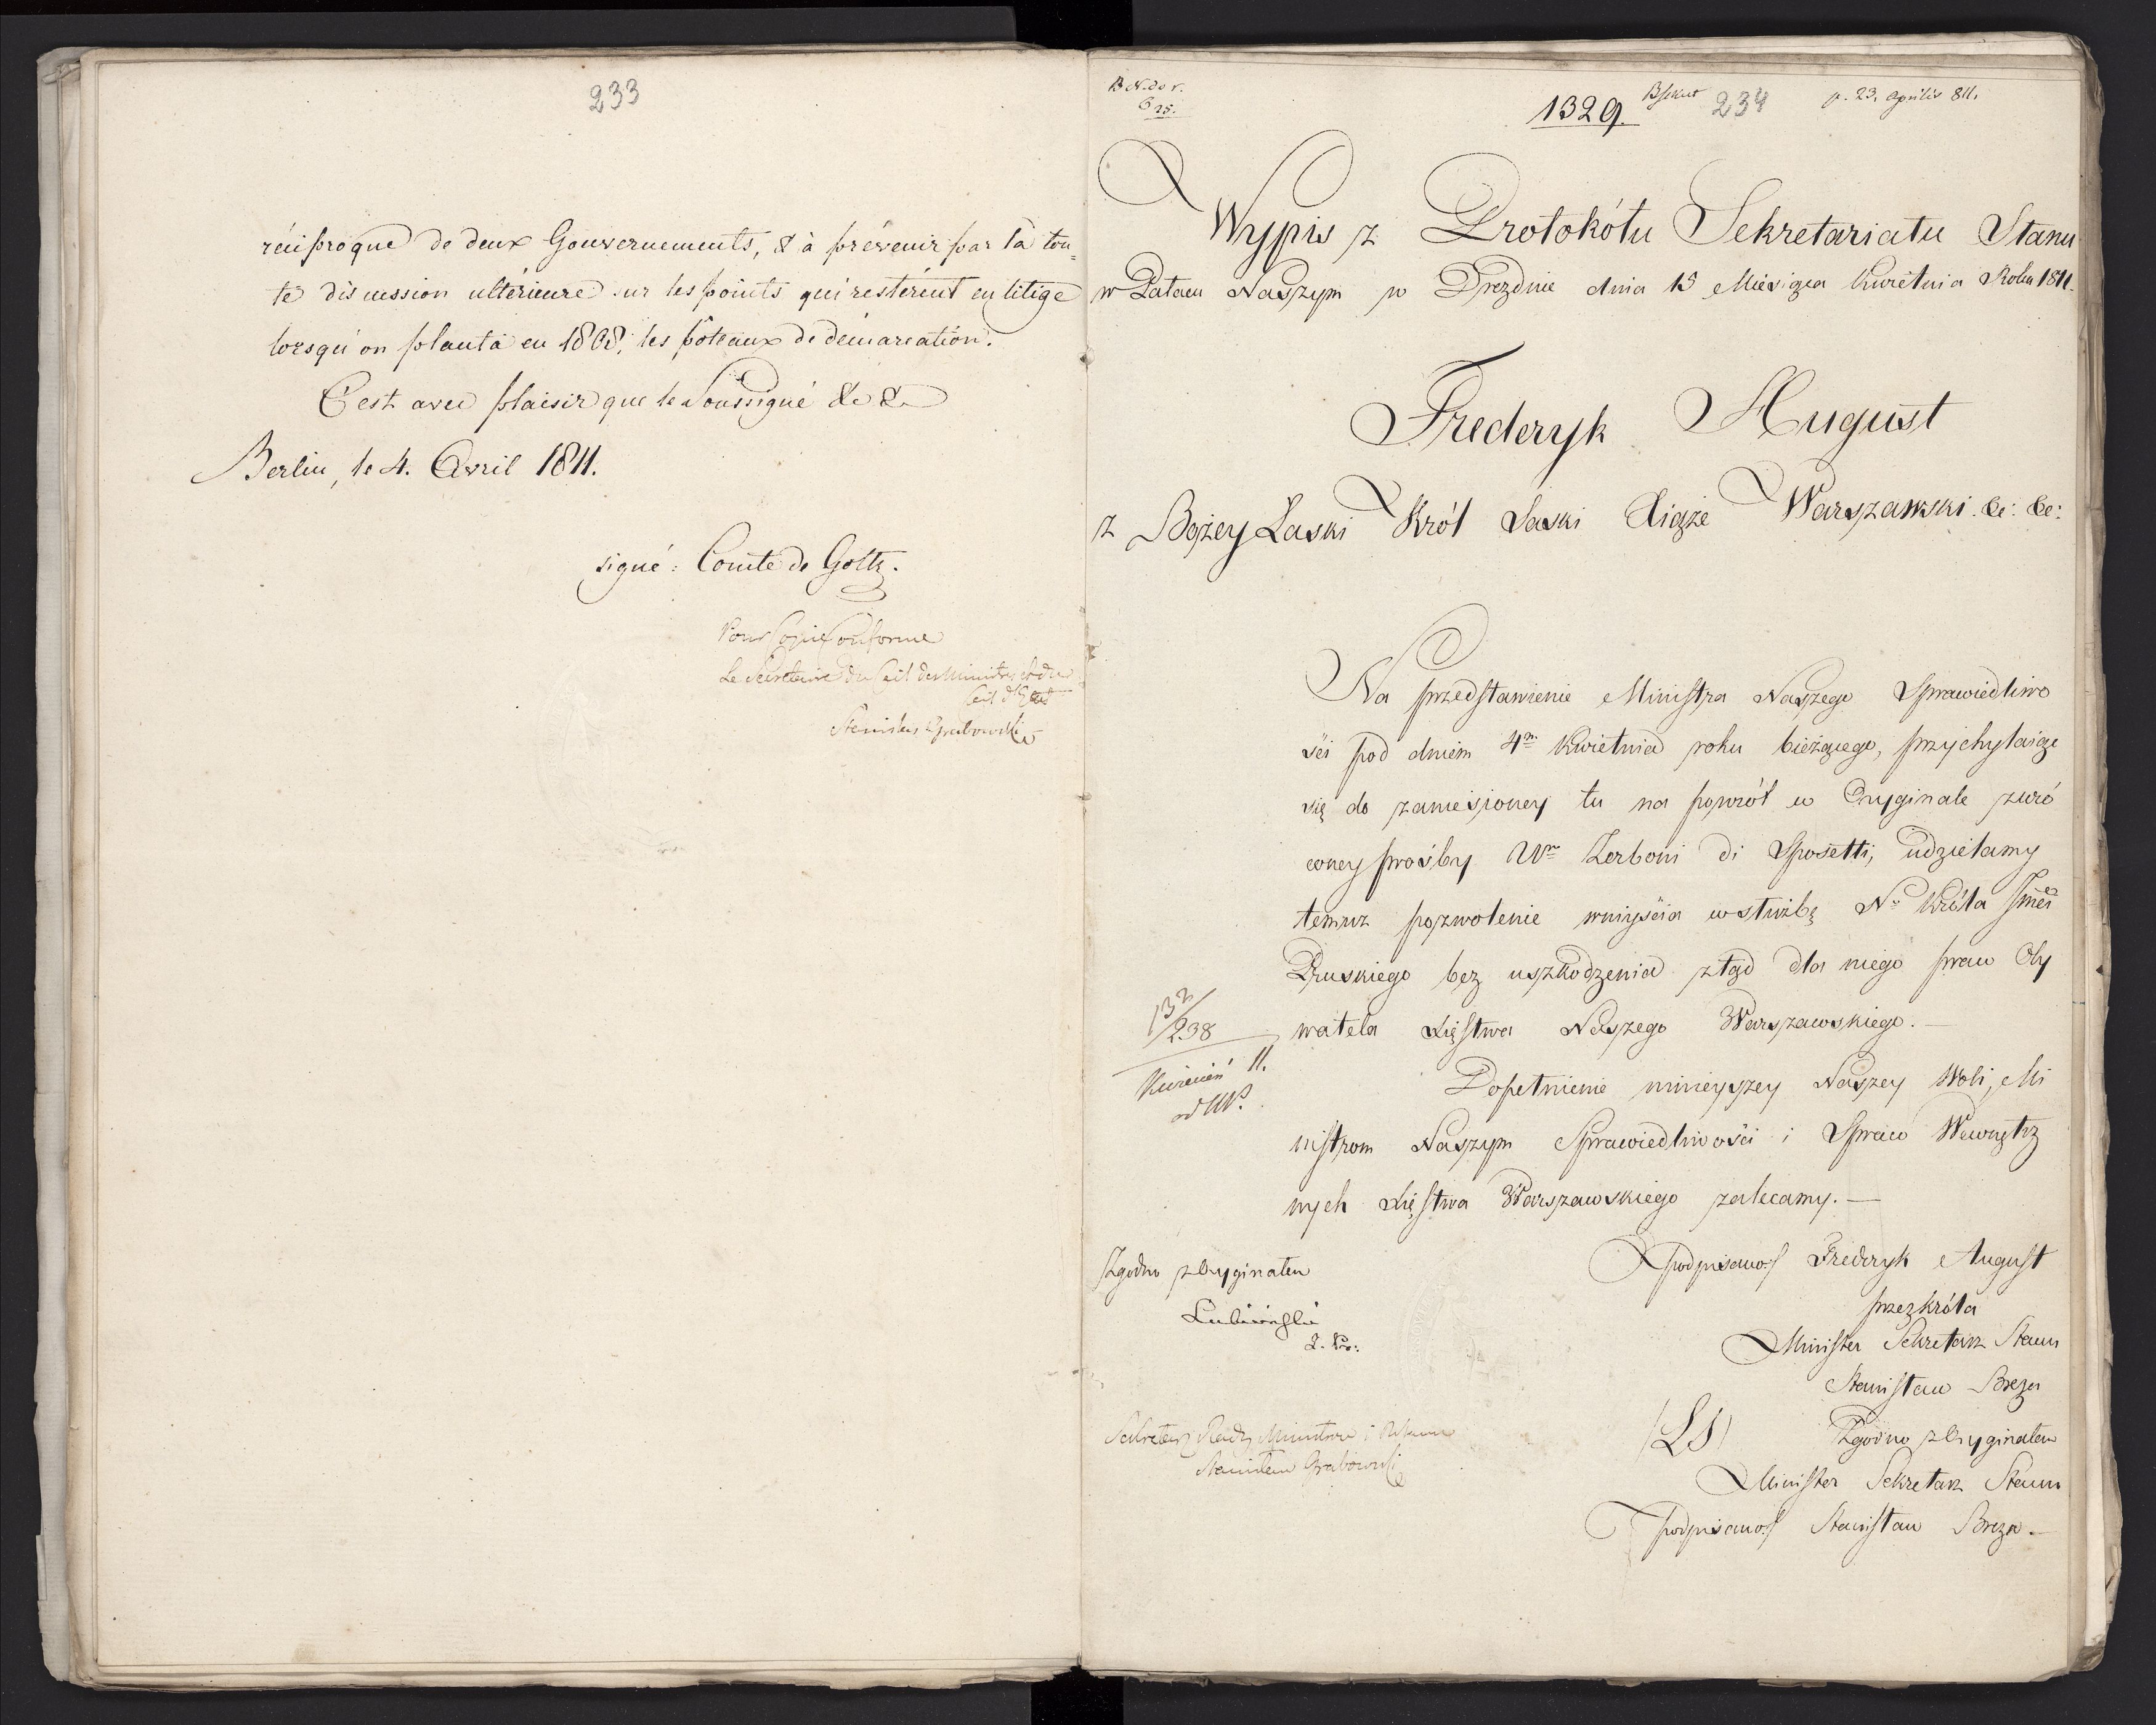 233
réciproque de deux Gouvernements, & à prévenir par là tou=
te discussion ultérieure sur les points qui restèrent en litige
lorsqu'on planta en 1808, les pôteaux de démarcation.
C'est avec plaisir que le Soussigné &c &c
Berlin, le 4. Avril 1811.
signé: Comte de Goltz.
Pour Copie Conforme
Le Secretaire du Ceil des Ministres et du
Ceil d'Etat
Stanislas Grabowski
1329.
234
p. 23. Aprilis 811.
Wypis z Protokółu Sekretariatu Stanu
w Pałacu Naszym w Dreznie dnia 15 Miesiąca Kwietnia Roku 1811.
Frederyk August
z Bożey Łaski Król Saski Xiąże Warszawski &c: &c:
Na przedstawienie Ministra Naszego Sprawiedliwo
ści pod dniem 4m Kwietnia roku bieżącego, przychylaiąc
się do zaniesioney tu na powrót w Oryginale zwró
coney prośby Ur Zerboni di Sposetti, udzielamy
temuz pozwolenie wniyścia w służbę Nо Króla Jmci
Pruskiego bez uszkodzenia ztąd dla niego praw Oby
watela Xięstwa Naszego Warszawskiego. —
Dopełnienie ninieyszey Naszey Woli, Mi
nistrom Naszym Sprawiedliwości i Spraw Wewnętrz
nych Xięstwa Warszawskiego zalecamy. —
238
Kwiecień 11.
podpisano/ Frederyk August
przez Króla
Minister Sekretarz Stanu
Stanisław Breza
/LS/ Zgodno z Oryginałem
Minister Sekretarz Stanu
podpisano/ Stanisław Breza. —
Zgodno z Oryginałem
Sekretarz Rady Ministrów i Stanu
Stanisław Grabowski